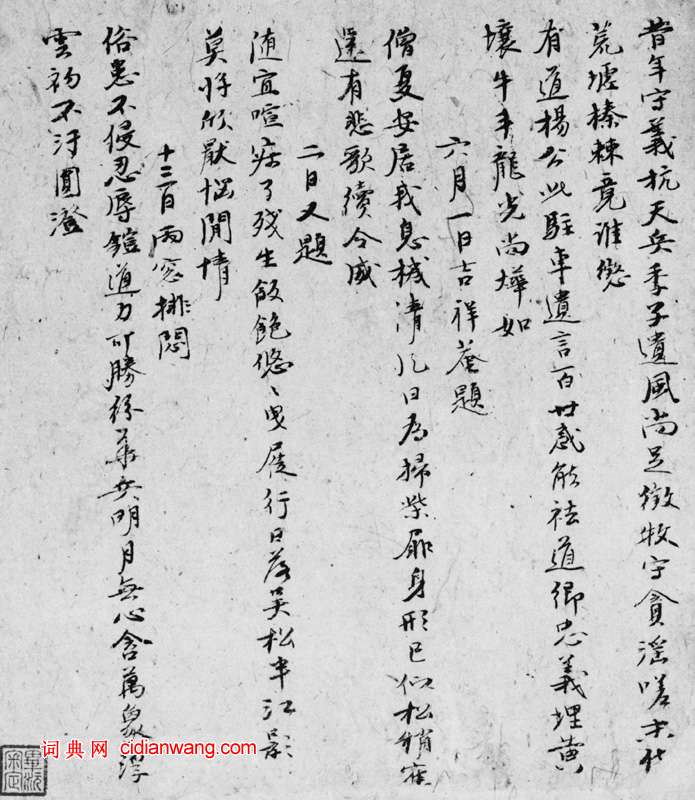 昔年守義抗天兵季子遺風尚足徵牧守貪淫嗟末代
荒墟榛棘竟誰懲
有道楊公此駐車遺言百世感能祛道鄉忠義埋黃
壤牛斗龍光尚燁如
六月一日吉祥菴題
僧夏安居我息機清風日為掃柴扉身形已似松梢寉
還有悲歌續令威
二日又題
隨宜喧寂了殘生飯飽悠〻曳履行日落吳松半江影
莫將欣厭惱閒情
十三日雨窓排悶
俗患不侵忍辱鎧道力可勝紛華兵明月無心含萬象浮
雲初不汙圓澄
词典网 cidianwang.com